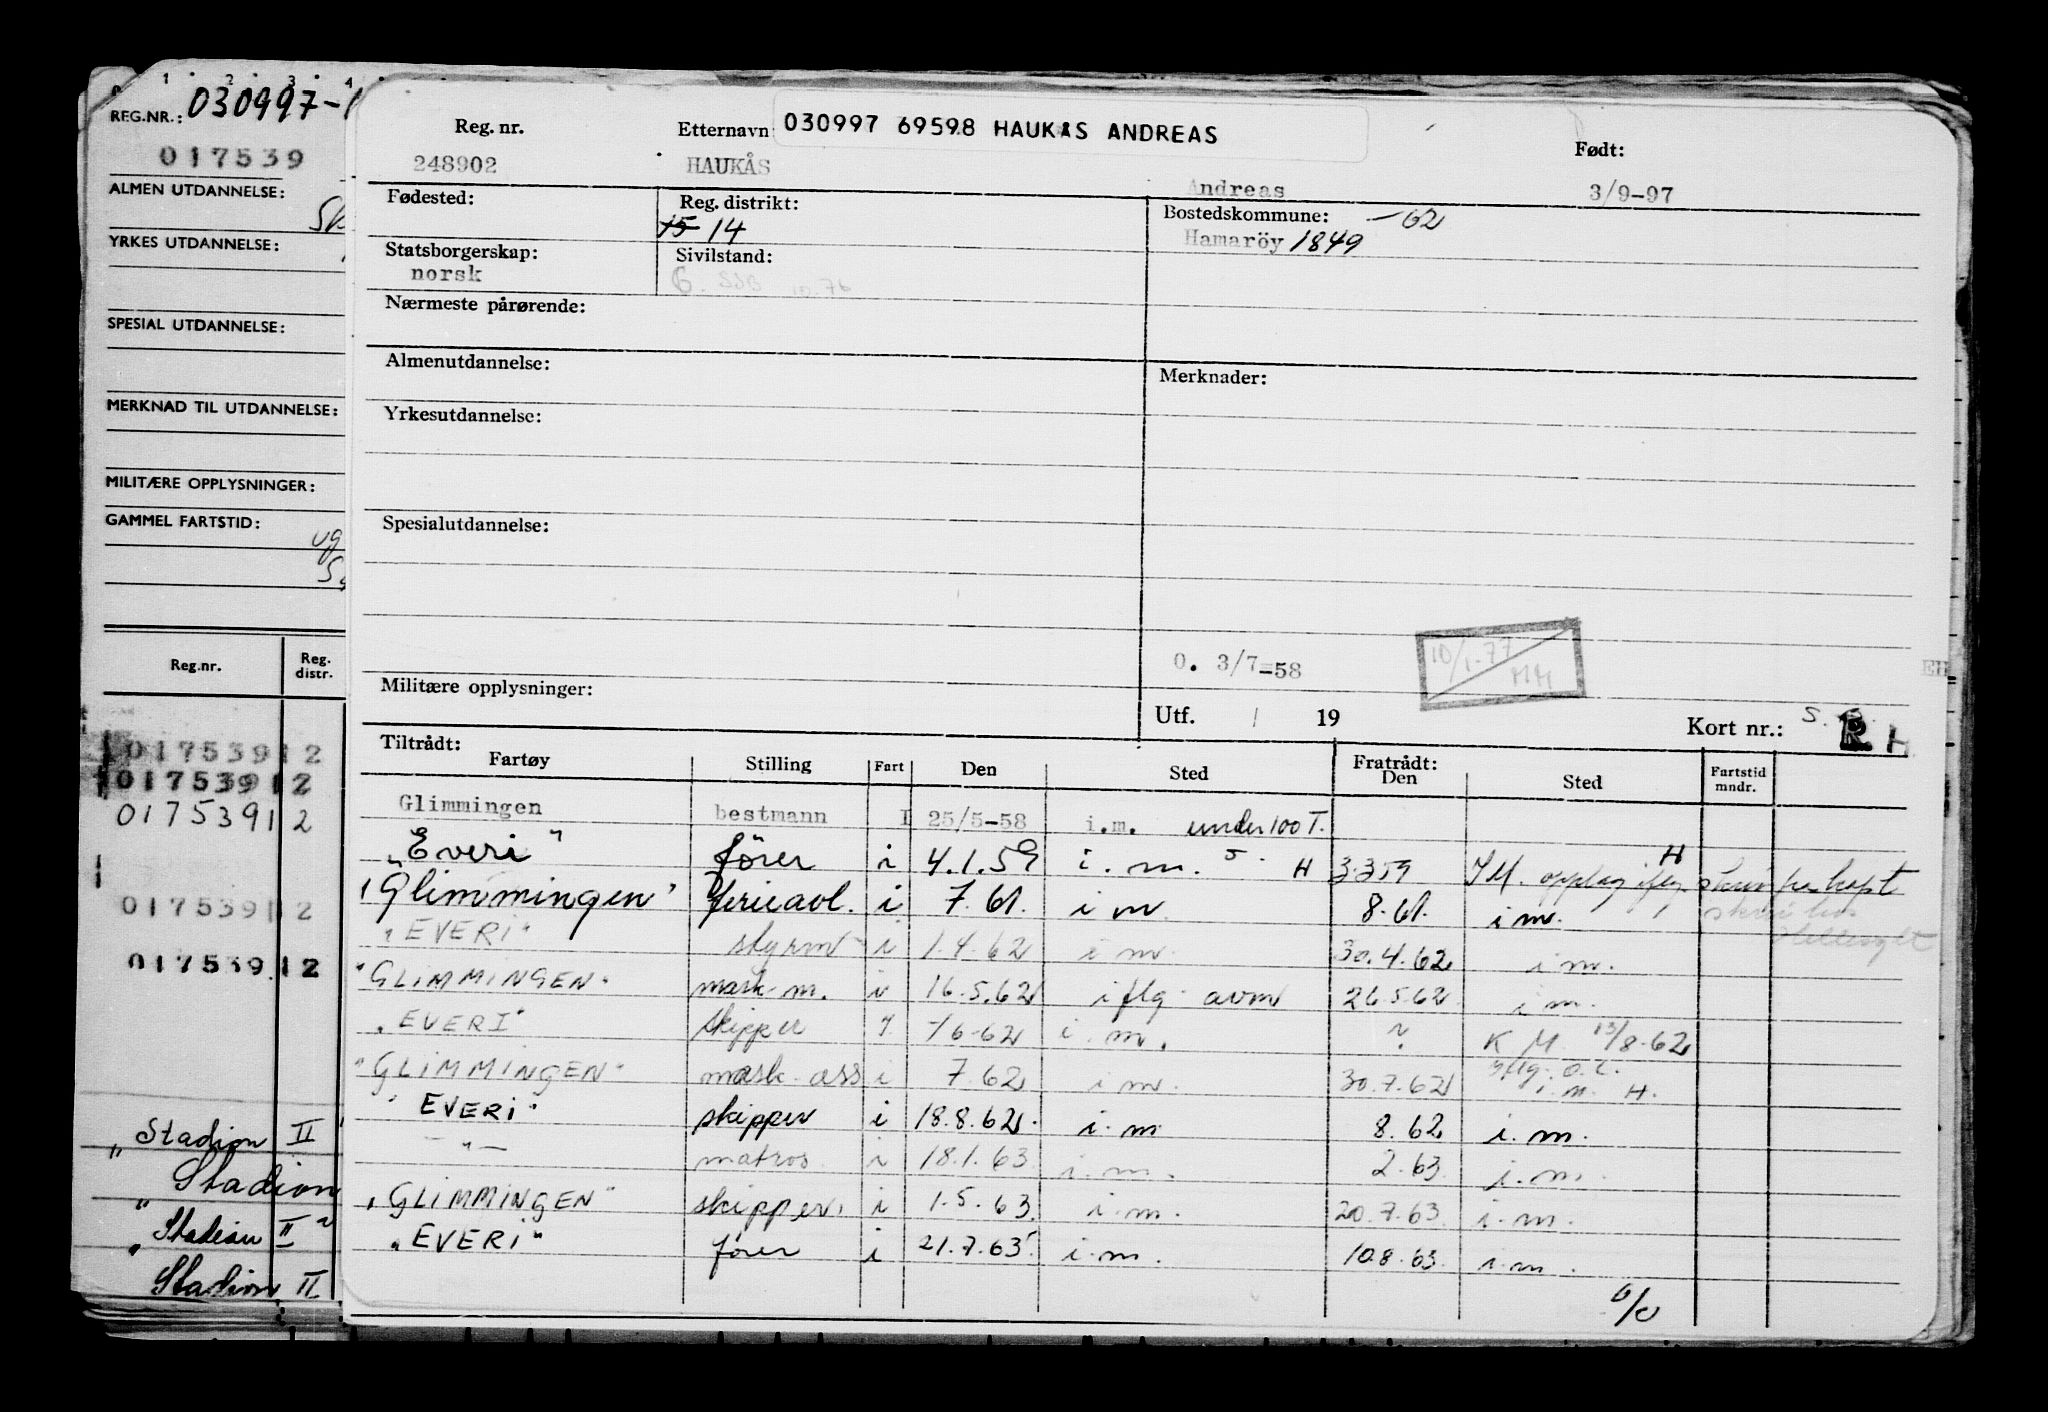 REG.NR.: 030997-
017539
ALMEN UTDANNELSE:
YRKES UTDANNELSE:
SPESIAL UTDANNELSE:
MERKNAD TIL UTDANNELSE:
MILITÆRE OPPLYSNINGER:
GAMMEL FARTSTID:
Reg.nr. Reg. distr.
017539 12
017539 12
017539 12
017539 12
017539 12
"Stadion II"
Stadion
"Stadion II"
"Stadion II
030997 69598 HAUKAS ANDREAS
Reg. nr. Etternavn Født:
248902 HAUKÅS Andreas 3/9-97
Fødested: Reg. distrikt: Bostedskommune: -62
15 14 Hamaröy 1849
Statsborgerskap: Sivilstand:
norsk G. SSB 10.76
Nærmeste pårørende:
Almenutdannelse: Merknader:
Yrkesutdannelse:
Spesialutdannelse:
0. 3/7-58 10/1-77 EH
Militære opplysninger: Utf. / 19 Kort nr.: R H
Tiltrådt: Fratrådt:
Fartøy Stilling Fart Den Sted Den Sted Fartstid mndr.
Glimmingen bestmann I 25/5-58 i.m. under 100 T.
"Everi" fører i 4.1.59 i.m. H 3.3.59 H
"Glimmingen" i 7.61. i m. 8.61. i m.
"EVERI" styrm i 1.4.62 i m. 30.4.62 i m.
"GLIMMINGEN" mask.m. i 16.5.62 iflg. avm 26.5.62 i m.
"EVERI" skipper 7 -/6-62 i. m. ? K M. 13/8-62
"GLIMMINGEN" mask.ass i 7.62 i m. 30.7.62 i.m. H.
"EVERI" skipper i 18.8.62. i.m 8.62 i.m.
-"- matros i 18.1.63 i.m. 2.63 i.m.
"GLIMMINGEN" skipper i 1.5.63. i.m. 20.7.63. i.m.
"EVERI" fører i 21.7.63. i.m. 10.8.63. i.m.